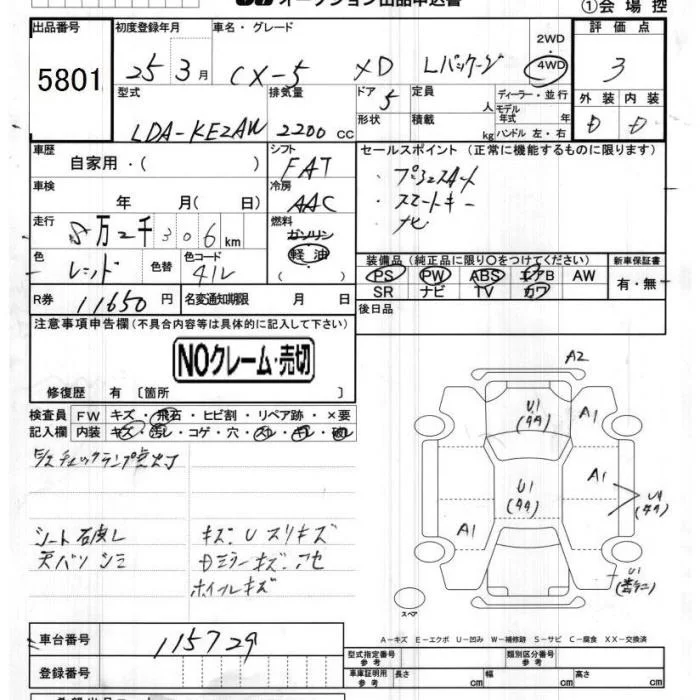 オークション出品申込書
①会場控
出品番号
5801
初度登録年月
25 3月
車名・グレード
CX-5 XD Lパッケージ
2WD
・
4WD
評価点
3
型式
LDA-KE2AW
排気量
2200 CC
ドア
5
定員
人
形状
積載
kg
ディーラー・並行
モデル
年式
年
ハンドル 左・右
外装
D
内装
D
車歴
自家用・( )
シフト
FAT
車検
年 月( 日)
冷房
AAC
走行
8万2千306km
燃料
ガソリン
軽油
( )
色
レッド
色替
色コード
41V
R券
11650円
名変通知期限
月 日
セールスポイント(正常に機能するものに限ります)
・プッシュスタート
・スマートキー
・ナビ
装備品(純正品に限り○をつけてください)
PS PW ABS エアB AW
SR ナビ TV カワ
新車保証書
有・無
後日品
注意事項申告欄(不具合内容等は具体的に記入して下さい)
NOクレーム・売切
修復歴 有〔箇所 〕
検査員
記入欄
FW キズ・飛石・ヒビ割・リペア跡・×要
内装 キズ・汚レ・コゲ・穴・スレ・キレ・破レ
チェックランプ点灯
シート
天バリ シミ
キズ・U スリキズ
ホイルキズ
A2
U1
(タタ)
A1
A1
U1
(タタ)
U4
(タタ)
A1
U1
スペア
A-キズ E-エクボ U-凹み W-補修跡 S-サビ C-腐食 XX-交換済
車台番号
115729
登録番号
型式指定番号
参考
類別区分番号
参考
車庫証明用
参考
長さ
cm
幅
cm
高さ
cm